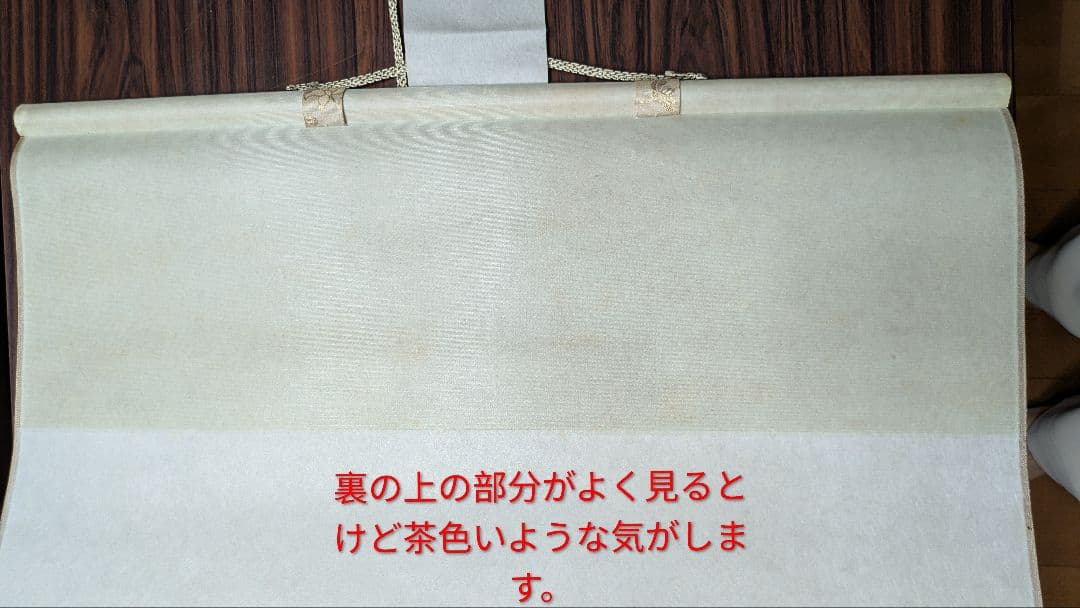 裏の上の部分がよく見ると
けど茶色いような気がしま
す。